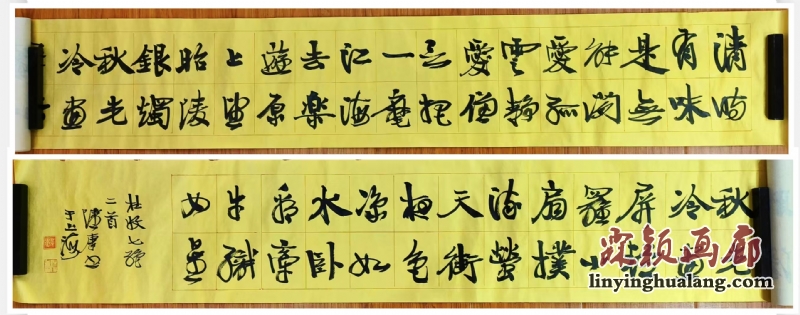 清時
有味
是無
能閑
愛孤
雲静
愛僧
欲把
一麾
江海
去樂
遊原
上望
昭陵
銀燭
秋光
冷畫
秋光
冷畫
屏輕
羅小
扇撲
流螢
天街
夜色
凉如
水卧
看牽
牛織
女星
杜牧七绝
二首
于上海
颖画廊
linyinghualang.com